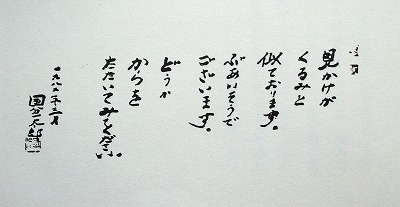 見かけが
くるみと
似ております。
ぶあいそうで
ございます。
どうか
からを
たたいてみてください。
一九八二年三月